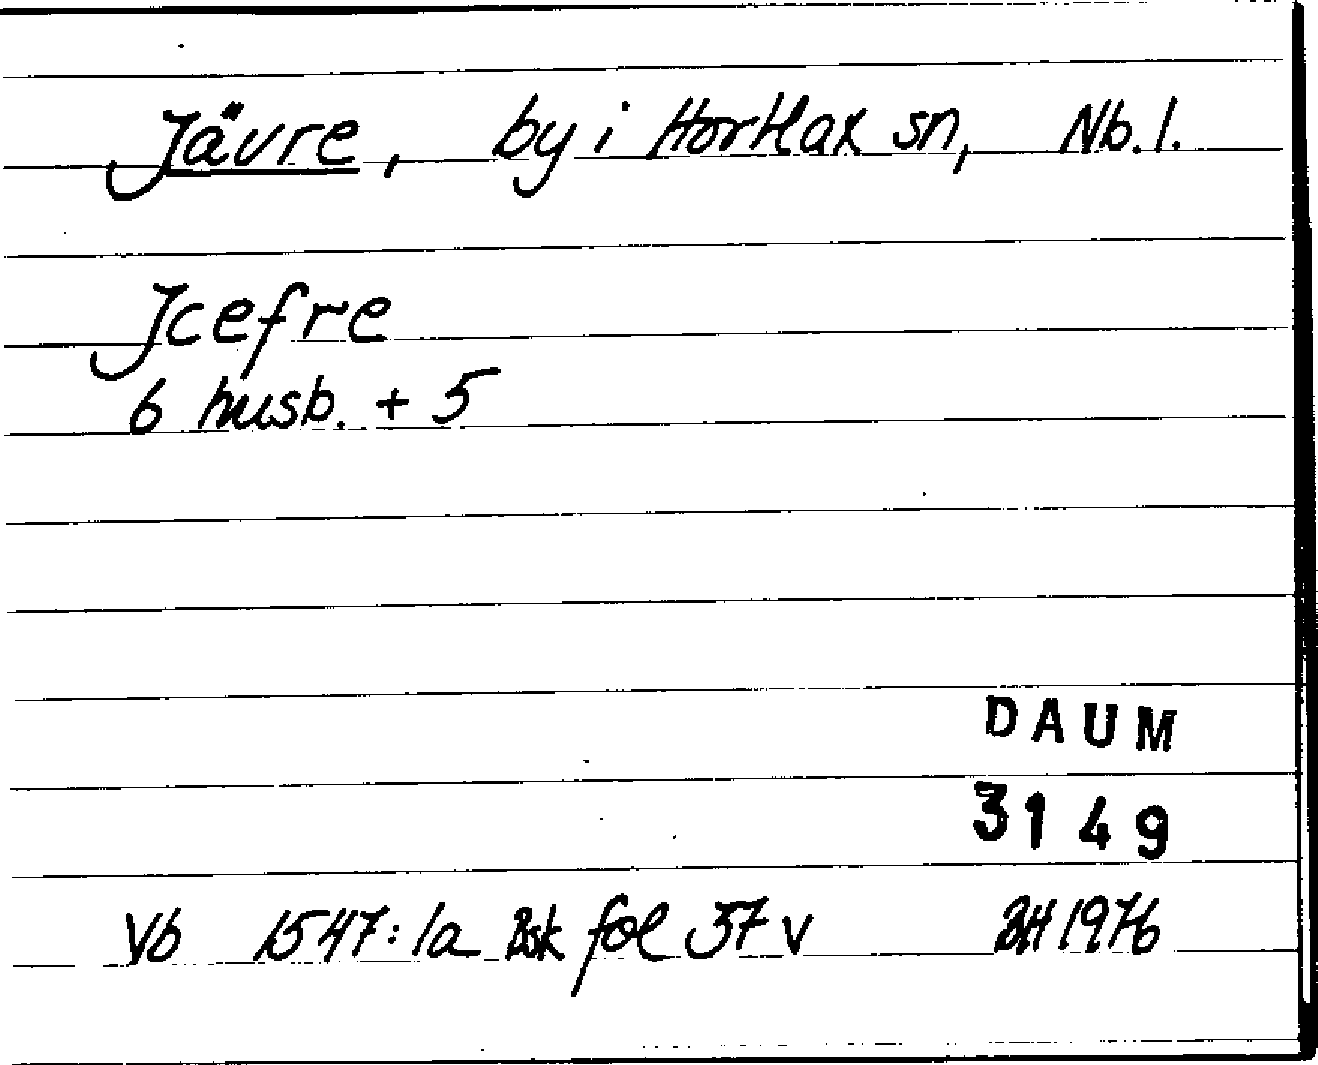 Jävre, by i Hortlax sn, Nb. l.
Jcefre
6 husb. + 5
DAUM
3149
Vb 1547:1a Bsk fol 37 v BH 1976